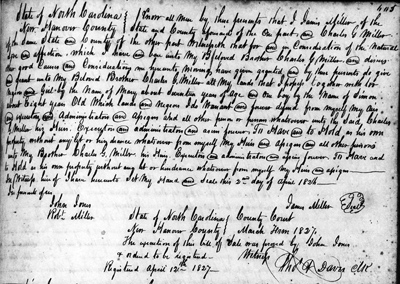 405
State of North Carolina } Know all Men by these presents that I James Miller of the
New Hanover County } State and County aforesaid of the One part and Charles G Miller
of the same State and County of the other part Witnesseth that for and in Consideration of the Natural
love and affection which I have and bear unto My Beloved Brother Charles G Miller and divers
good Causes and Considerations me hereunto Moving have given granted and by these presents do give
and grant unto My Beloved Brother Charles G Miller all My lands that I possess together with two
Negroes and Gal by the Name of Mary about Seventeen years of Age and a boy by the Name of
about Eight years Old Which lands and Negroes I do Warrant and forever defend from myself My heirs
executors and Administrators and Assigns and all other person or persons whatsoever unto the said Charles
G Miller his Heirs Executors and administrators and assigns forever To Have and to Hold as his own
property without any let or hindrance whatsoever from myself My Heirs and assigns and all other persons
unto My Brother Charles G. Miller his Heirs Executors and administrators and assigns forever To Have and
to Hold as his own property without any let or hindrance whatsoever from myself My Heirs and assigns
In Witness whereof I have hereunto Set My Hand and Seal this 3rd day of April 1826
In presents of us
John Jones
James Miller Seal
Robt. Miller
State of North Carolina } County Court
New Hanover County } March Term 1827.
The execution of this bill of Sale was proved by John Jones
& ordered to be registered
Witness
Registered April 12th 1827.
Thos. F. Davis Clk